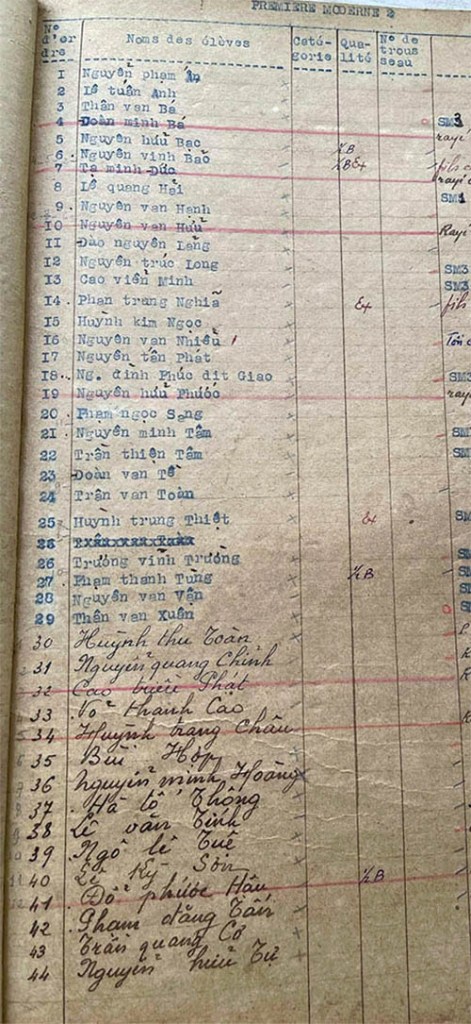 PREMIERE MODERNE 2
N° d'or dre Noms des élèves Caté- gorie Qua- lité N° de trous seau
I Nguyễn phạm Ẩn
2 Lê tuấn Anh
3 Thân van Bá
4 Doàn minh Bá SM3
5 Nguyễn hữu Bạc rayé
6 Nguyễn vinh Bảo ½B
7 Tạ minh Đức ½B Ex fils
8 Lê quang Hải rayé
9 Nguyễn van Hanh SM1
10 Nguyễn van Hưũ Rayé
II Đào nguyên Lang
I2 Nguyễn trúc Long SM3
I3 Cao viễn Minh SM3
I4 Phan trang Nghiã Ex fils
I5 Huỳnh kim Ngọc
I6 Nguyễn van Nhiều
I7 Nguyễn tấn Phát
I8 Ng. đình Phúc dit Giao SM3
I9 Nguyễn hữu Phước rayé
20 Phạm ngọc Sang
2I Nguyễn minh Tâm SM
22 Trần thiện Tâm SM
23 Doàn van Tề
24 Trần van Toàn
25 Huỳnh trung Thiệt Ex SM
26
26 Trương vinh Trường
27 Phạm thanh Tùng ½B
28 Nguyễn van Vận
29 Thân van Xuân
30 Huỳnh thu Toàn
31 Nguyễn quang Chinh
32 Cao Phát
33 Võ thanh Cao
34 Huỳnh trang Châu
35 Bùi Hợp
36 Nguyễn minh Hoàng
37 Hà Thông
38 Lê văn Tinh
39 Ngô lê Tuê
40 Lê Kỳ Sơn
41 Đỗ phước Hậu ½B
42 Phạm đăng Tấn
43 Trần quang Cơ
44 Nguyễn hữu Tự